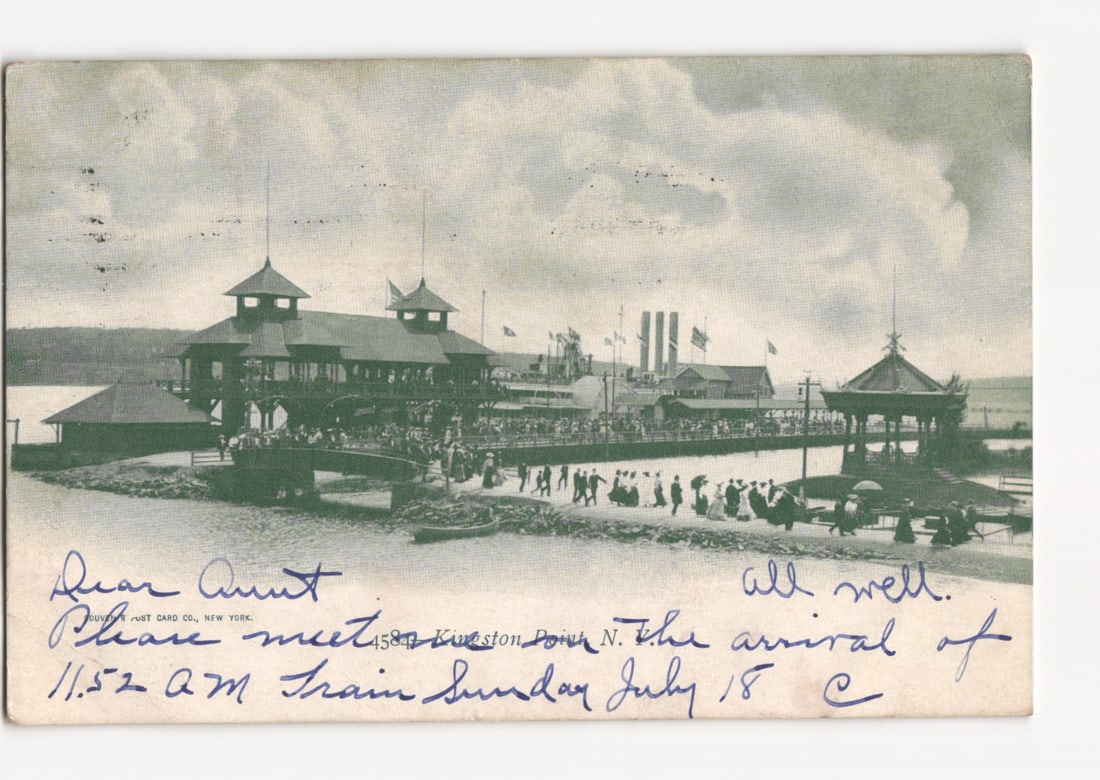 Dear Aunt All well.
SOUVENIR POST CARD CO., NEW YORK.
Please meet me on The arrival of
4584. Kingston Point, N. Y.
11.52 AM Train Sunday July 18 C